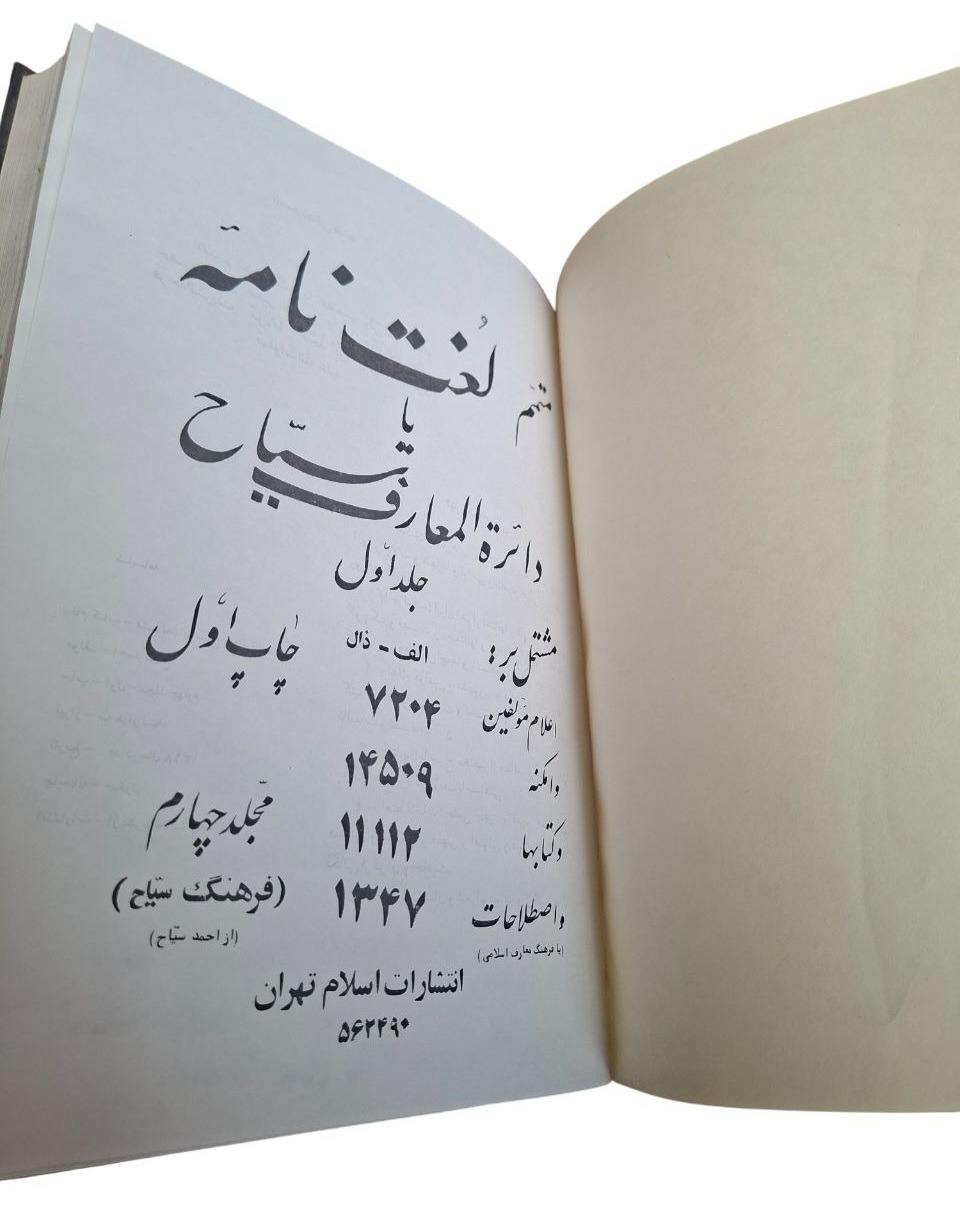 متمّم لُغت نامهٔ
یا
دائرة المعارف سیّاح
جلد اوّل
مشتمل بر: الف - ذال چاپ اوّل
اعلام مؤلفین ۷۲۰۴
وامکنه ۱۴۵۰۹
وکتابها ۱۱۱۱۲ مجّلد چهارم
واصطلاحات ۱۳۴۷ (فرهنگ سیّاح)
(یا فرهنگ معارف اسلامی) (از احمد سیّاح)
انتشارات اسلام تهران
۵۶۲۴۹۰